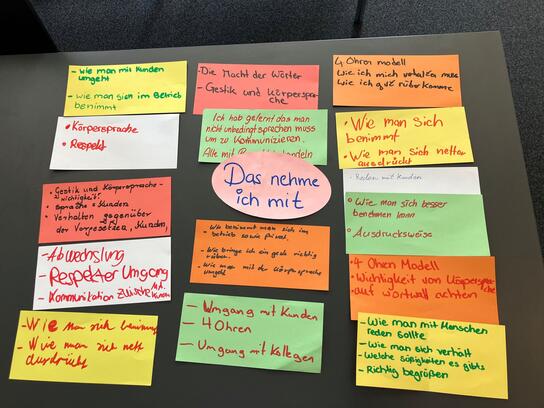 - Wie man mit Kunden
umgeht
- Wie man sich im Betrieb
benimmt
- Die Macht der Wörter
- Gestik und Körperspra-
che
4 Ohren modell
Wie ich mich verhalten muss
Wie ich gut rüberkomme
• Körpersprache
• Respekt
Ich hab gelernt das man
nicht unbedingt sprechen muss
um zu Kommunizieren.
Alle mit
• Wie man sich
benimmt
• Wie man sich netter
ausdrückt
Das nehme
ich mit
- Reden mit Kunden
• Gestik und Körpersprache -
wichtigkeit!
• Sprache + Kunden
• Verhalten gegenüber
der Vorgesetzten, Kunden,
• Wie man sich besser
benehmen kann
• Ausdrucksweise
- Wie benimmt man sich im
betrieb sowie Privat.
- Wie bringe ich ein gesp. richtig
rüber.
- Wie man mit der Körpersprache
umgeht
- Abwechslung
- Respekter Umgang
- Kommunikation
• 4 Ohren Modell
• Wichtigkeit von Körperspra-
che
• auf wortwall achten
- Wie man sich benimmt
- Wie man sich nett
ausdrückt
- Umgang mit Kunden
- 4 Ohren
- Umgang mit Kollegen
- Wie man mit Menschen
reden sollte
- Wie man sich verhält
- Welche Süßigkeiten es gibts
- Richtig begrüßen